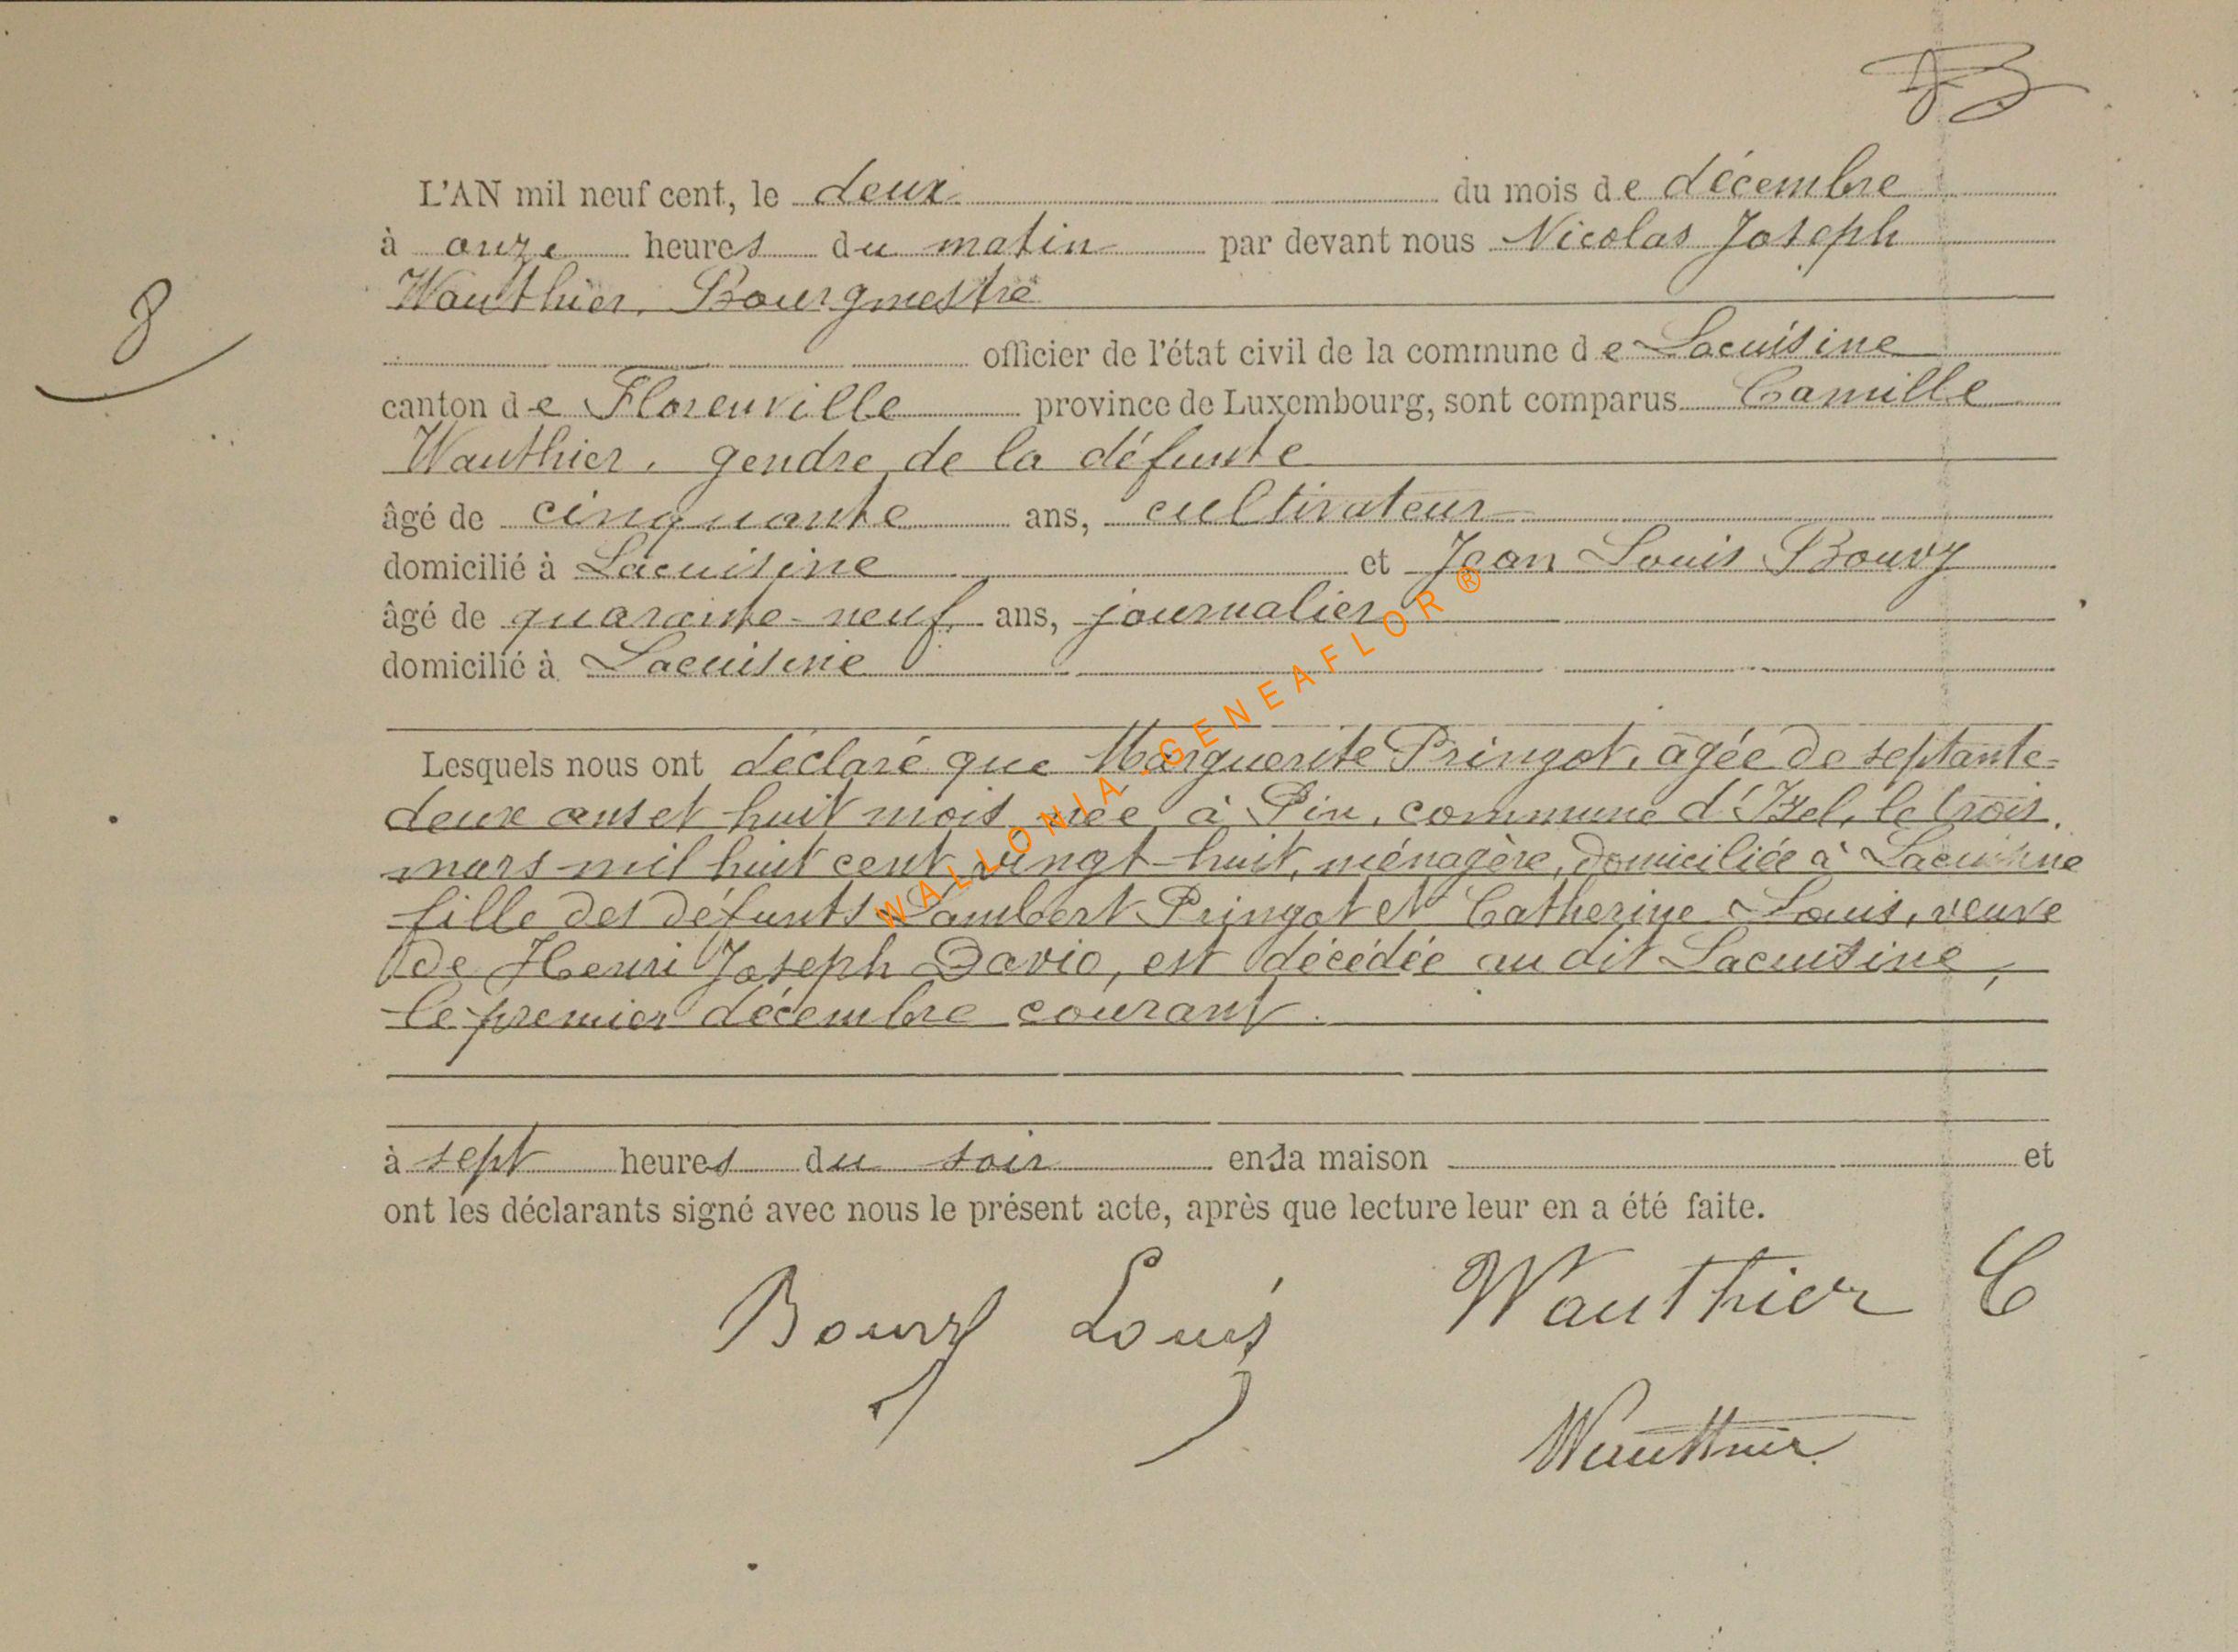 8
L'AN mil neuf cent, le deux du mois de décembre
à onze heures du matin par devant nous Nicolas Joseph
Wauthier, Bourgmestre
officier de l'état civil de la commune de Lacuisine
canton de Florenville province de Luxembourg, sont comparus Camille
Wauthier, gendre de la défunte
âgé de cinquante ans, cultivateur
domicilié à Lacuisine et Jean Louis Bouvy
âgé de quarante-neuf ans, journalier
domicilié à Lacuisine
Lesquels nous ont déclaré que Marguerite Pringot, agée de septante-
deux ans et huit mois, née à Pin, commune d'Izel, le trois
mars mil huit cent vingt-huit, ménagère, domiciliée à Lacuisine
fille des défunts Lambert Pringot et Catherine Louis, veuve
de Henri Joseph Davio, est décédée au dit Lacuisine,
le premier décembre courant.
à sept heures du soir en la maison et
ont les déclarants signé avec nous le présent acte, après que lecture leur en a été faite.
Bouvy Louis Wauthier C
Wauthier
WALLONIA.GENEAFLOR®